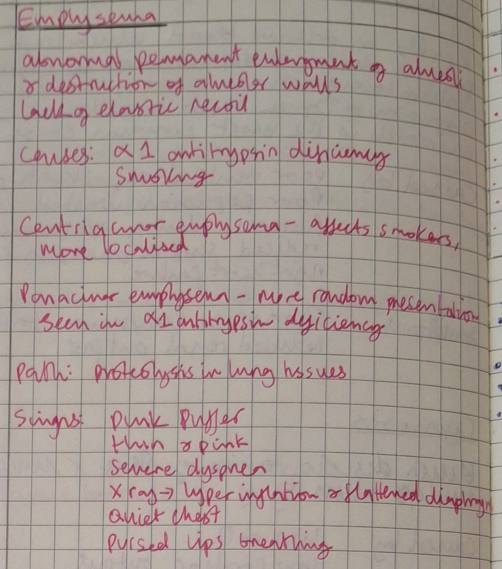 Emphysema
abnormal permanent enlargment of alveoli
& destruction of alveolar walls
lack of elastic recoil
Causes: α1 antitrypsin dificiency
smoking
Centriacinar emphysema - affects smokers,
more localised
Panacinar emphysema - more random presentation
seen in α1 antitrypsin deficiency
Path: proteolysis in lung tissues
Signs: pink puffer
thin & pink
severe dyspnea
X ray → hyper inflation & flattened diaphragm
quiet chest
pursed lips breathing